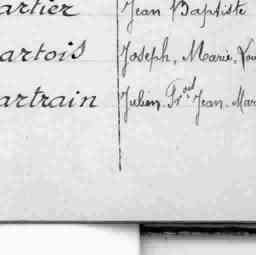 artier Jean Baptiste
artois Joseph, Marie, Lou
artrain Julien. Fr.çois Jean. Mar